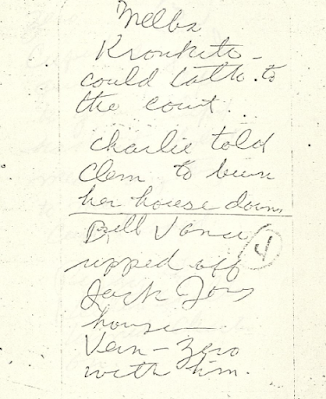 Melba
Kronkite -
could talk to
the court.
Charlie told
Clem to burn
her house down.
Bill Vance
ripped off
Jack
house
Van - Zero
with him.